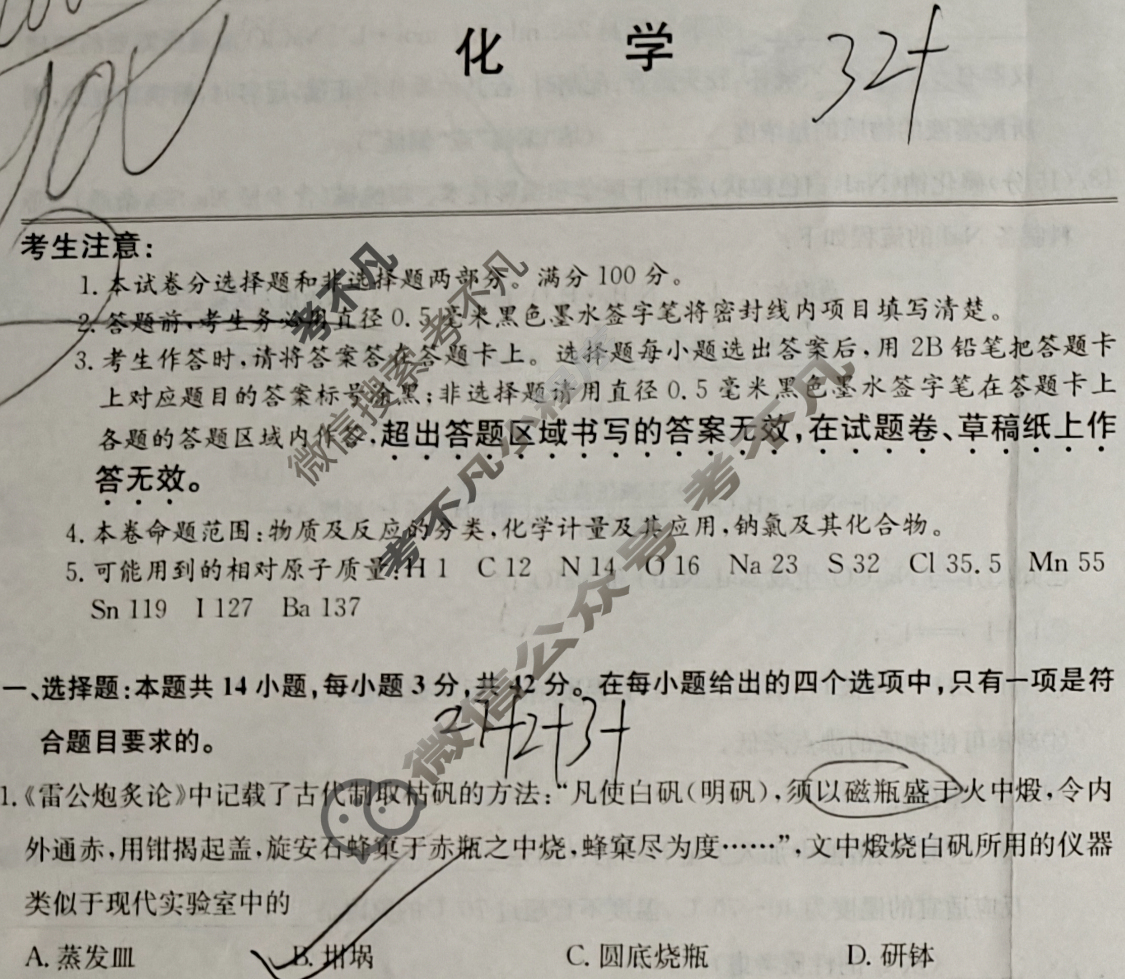 化 学
32+
考生注意:
1. 本试卷分选择题和非选择题两部分。满分 100 分。
2. 答题前,考生务必用直径 0.5 毫米黑色墨水签字笔将密封线内项目填写清楚。
3. 考生作答时,请将答案答在答题卡上。选择题每小题选出答案后,用 2B 铅笔把答题卡
上对应题目的答案标号涂黑;非选择题请用直径 0.5 毫米黑色墨水签字笔在答题卡上
各题的答题区域内作答,超出答题区域书写的答案无效,在试题卷、草稿纸上作
答无效。
4. 本卷命题范围:物质及反应的分类,化学计量及其应用,钠氯及其化合物。
5. 可能用到的相对原子质量:H 1 C 12 N 14 O 16 Na 23 S 32 Cl 35.5 Mn 55
Sn 119 I 127 Ba 137
考不凡
微信搜索考不凡
考不凡
微信公众号考不凡
一、选择题:本题共 14 小题,每小题 3 分,共 42 分。在每小题给出的四个选项中,只有一项是符
合题目要求的。
27+2+3+
1.《雷公炮炙论》中记载了古代制取枯矾的方法:“凡使白矾(明矾),须以磁瓶盛于火中煅,令内
外通赤,用钳揭起盖,旋安石蜂窠于赤瓶之中烧,蜂窠尽为度……”,文中煅烧白矾所用的仪器
类似于现代实验室中的
A. 蒸发皿 B. 坩埚 C. 圆底烧瓶 D. 研钵